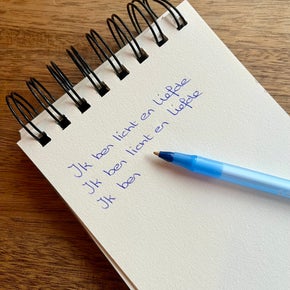 Ik ben licht en liefde
Ik ben licht en liefde
Ik ben